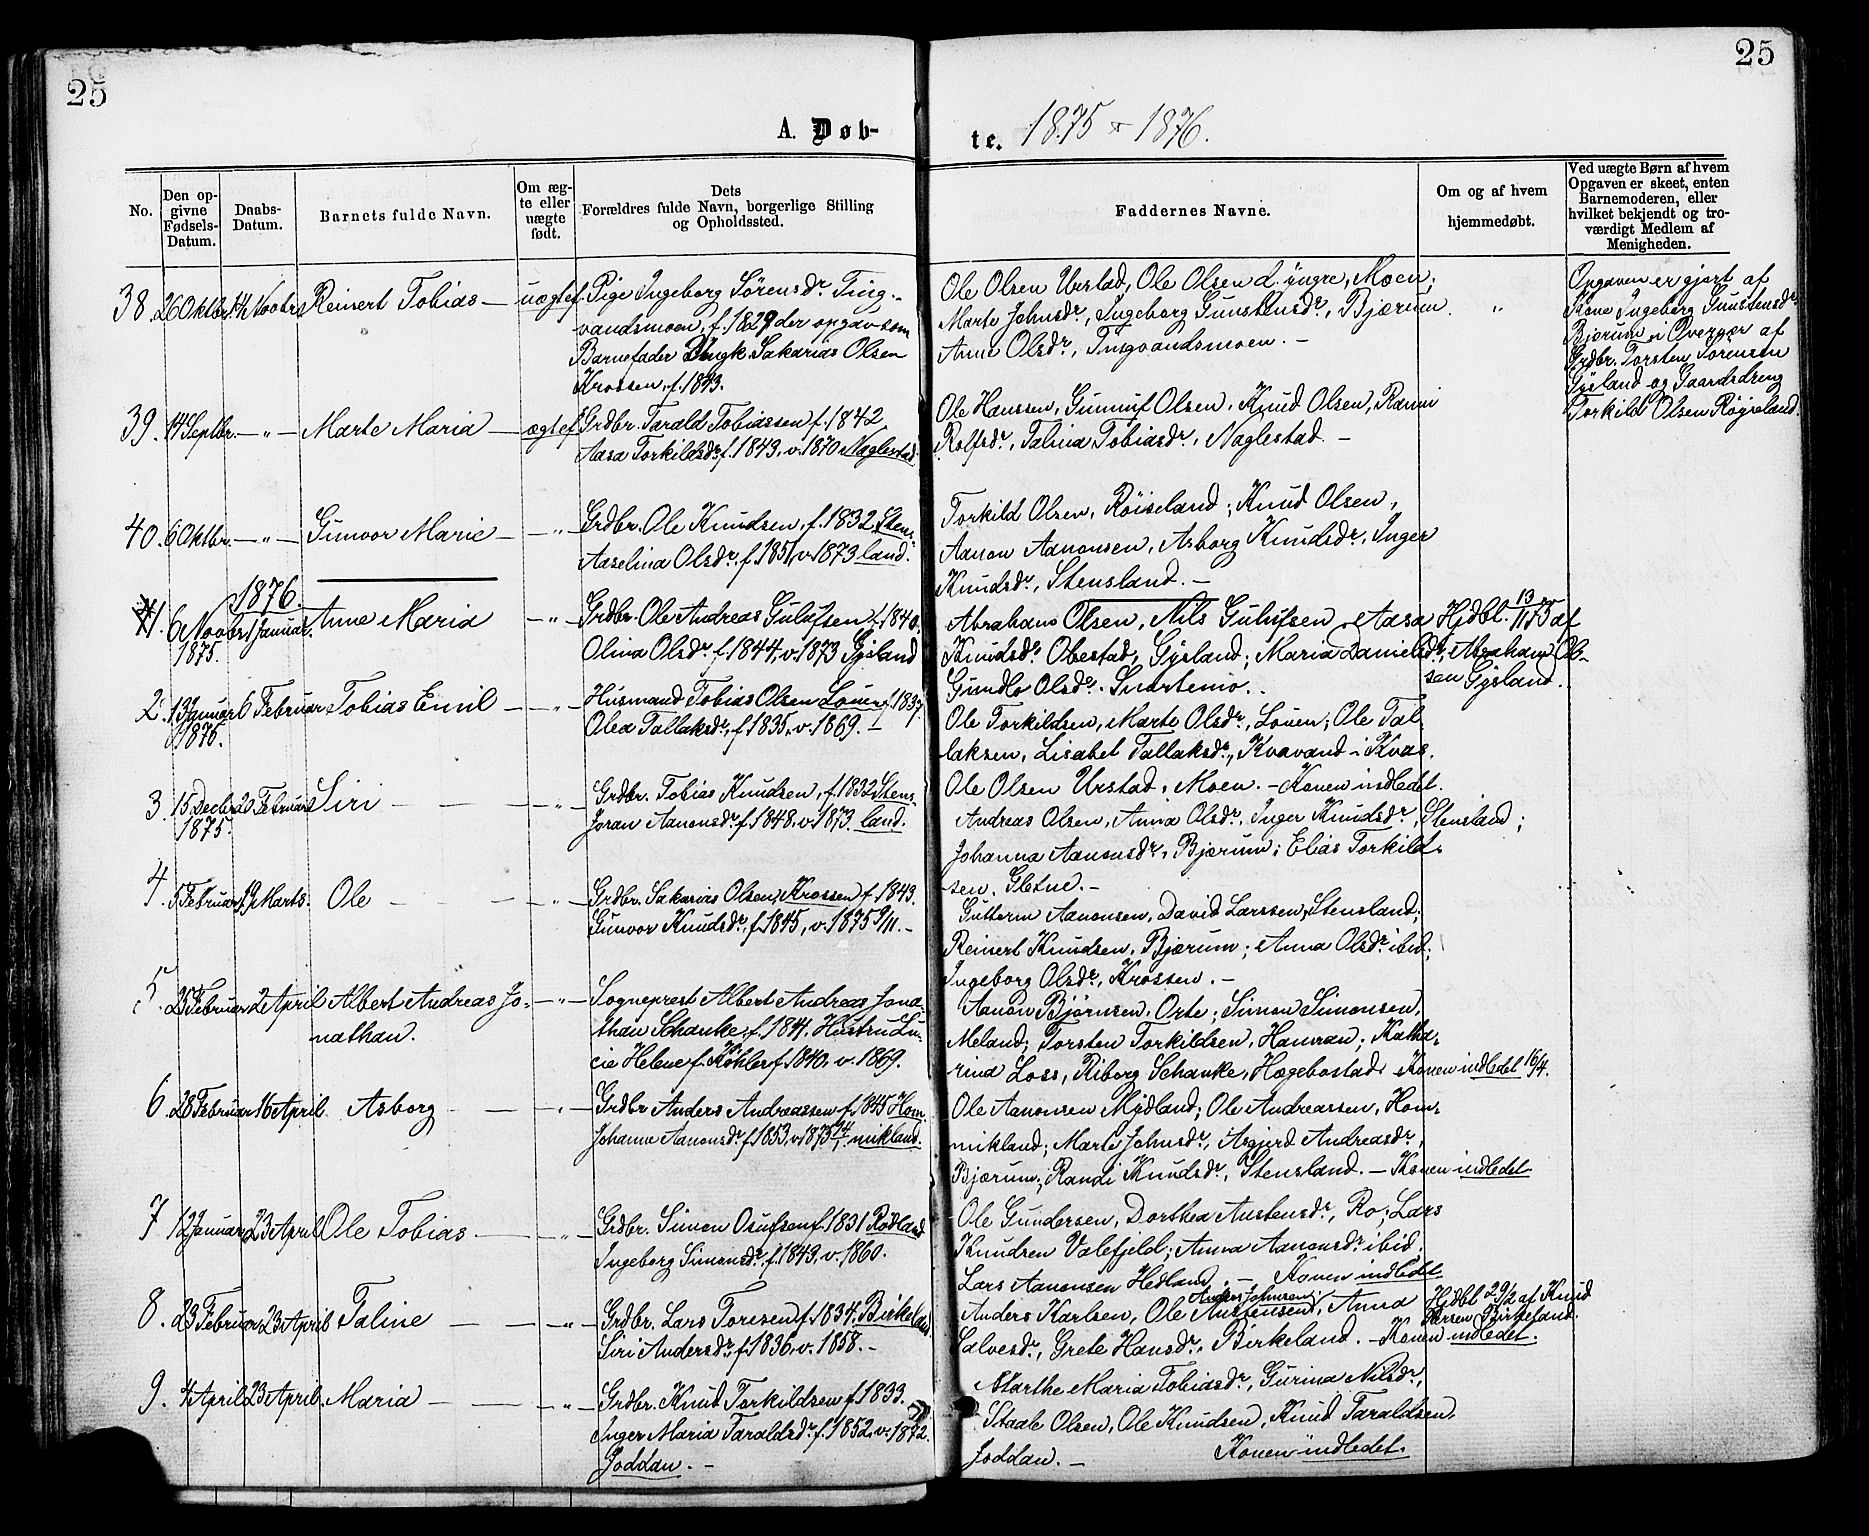 25
25
A. Døb-
te. 1875 & 1876.
No.
Den op-
givne
Fødsels-
Datum.
Daabs-
Datum.
Barnets fulde Navn.
Om æg-
te eller
uægte
født.
Dets
Forældres fulde Navn, borgerlige Stilling
og Opholdssted.
Faddernes Navne.
Om og af hvem
hjemmedøbt.
Ved uægte Børn af hvem
Opgaven er skeet, enten
Barnemoderen, eller
hvilket bekjendt og tro-
værdigt Medlem af
Menigheden.
38. 26 Oktbr. 14 Novbr. Reinert Tobias — uægtef. Pige Ingeborg Sørensdr. Ting-
vandsmoen, f. 1829 der opgav som
Barnefader Ungk. Sakarias Olsen
Krossen, f. 1843.
Ole Olsen Urstad, Ole Olsen d. yngre, Moen;
Marte Johnsdr., Ingeborg Gunstensdr., Bjærum. "
Anne Olsdr., Tingvandsmoen. —
Opgaven er gjort af
Kone Ingeborg Gunstensdr.
Bjærum i Overvær af
Grdbr. Torsten Sørensen
Gysland og Gaardsdreng
Torkild Olsen Røyseland.
39. 14 Septbr. — " — Marte Maria — ægtef. Grdbr. Tarald Tobiassen f. 1842
Aasa Torkildsdr. f. 1843, v. 1870 Naglestad.
Ole Hanssen, Gunnuf Olsen, Knud Olsen, Ranni
Rolfsdr., Talina Tobiasdr., Naglestad. —
40. 6 Oktbr. — " — Gunvor Marie — " — Grdbr. Ole Knudsen, f. 1832 Stens-
Aaselina Olsdr., f. 1851, v. 1873 land.
Torkild Olsen, Røiseland; Knud Olsen,
Aanon Aanonsen, Asborg Knudsdr., Inger
Knudsdr., Stensland. —
1876
1. 6 Novbr. 1 Januar. Anne Maria — " — Grdbr. Ole Andreas Gulufsen f. 1840.
1875.
Olina Olsdr. f. 1844, v. 1873 Gysland
Abraham Olsen, Nils Gulufsen, Aasa Hjdbt. 13/11 75 af
Knudsdr. Obestad, Gysland; Maria Danielsdr., Abraham Ol-
Gundlo Olsdr. Snartemo. sen Gysland.
2. 13 Januar 6 Februar Tobias Emil — " — Husmand Tobias Olsen Louen f. 1837.
1876.
Olea Tallaksdr., f. 1835, v. 1869. —
Ole Torkildsen, Marte Olsdr., Louen; Ole Tal-
laksen, Lisabet Tallaksdr., Kvavand i Kvas.
Ole Olsen Urstad, Moen. — Konen indledet.
3. 15 Decbr. 20 Februar Siri — " — Grdbr. Tobias Knudsen, f. 1832 Stens-
1875.
Joran Aanonsdr. f. 1848, v. 1873. land.
Andreas Olsen, Anna Olsdr., Inger Knudsdr., Stensland;
Johanna Aanonsdr., Bjærum; Elias Torkild-
sen, Gletne. —
4. 5 Februar 19 Marts. Ole — " — Grdbr. Sakarias Olsen, Krossen f. 1843.
Gunvor Knudsdr., f. 1845, v. 1875 9/11. —
Guttorm Aanonsen, David Larssen, Stensland;
Reinert Knudsen, Bjærum; Anna Olsdr. ibid;
Ingeborg Olsdr., Krossen. —
5. 25 Februar 2 April Albert Andreas Jo- — " — Sogneprest Albert Andreas Jona-
nathan.
than Schanke, f. 1844. Hustru Lu-
cie Helene f. Køhler f. 1840, v. 1869.
Aanon Bjørnsen, Orte; Simon Simonsen,
Meland; Torsten Torkildsen, Hamran; Katha-
rina Loss, Riborg Schanke, Hægebostad. Konen indledet 16/4.
6. 28 Februar 16 April Asborg — " — Grdbr Anders Andreassen f. 1845 Hom-
Johanne Aanonsdr. f. 1853, v. 1875 mikland.
Ole Aanonsen Mydland; Ole Andreassen, Hom-
mikland; Marte Johnsdr., Asgjerd Andreasdr.,
Bjærum; Randi Knudsdr., Stensland. — Konen indledet
7. 12 Januar 23 April Ole Tobias — " — Grdbr. Simon Osufsen f. 1831 Rødland
Ingeborg Simonsdr., f. 1843, v. 1860.
Ole Gundersen, Dorthea Austensdr., Ro; Lars
Knudsen Valefjeld; Anna Aanonsdr. ibid.
Lars Aanonsen Hedland. — Konen indledet.
8. 23 Februar 23 April Taline — " — Grdbr. Lars Toresen f. 1834. Birkeland.
Siri Andersdr., f. 1836, v. 1858. —
Anders Johnsen
Anders Karlsen, Ole Austensen, Anna Hjdbt 29/2 af Knud
Salvesdr., Grete Hansdr., Birkeland. — Konen indledet. Birkeland.
9. 4 April 23 April. Maria — " — Grdbr. Knud Torkildsen f. 1833.
Inger Maria Taraldsdr. f. 1852, v. 1872.
Joddan. —
Marthe Maria Tobiasdr., Gurina Nilsdr.,
Staale Olsen, Ole Knudsen, Knud Taraldsen,
Joddan. — Konen indledet.